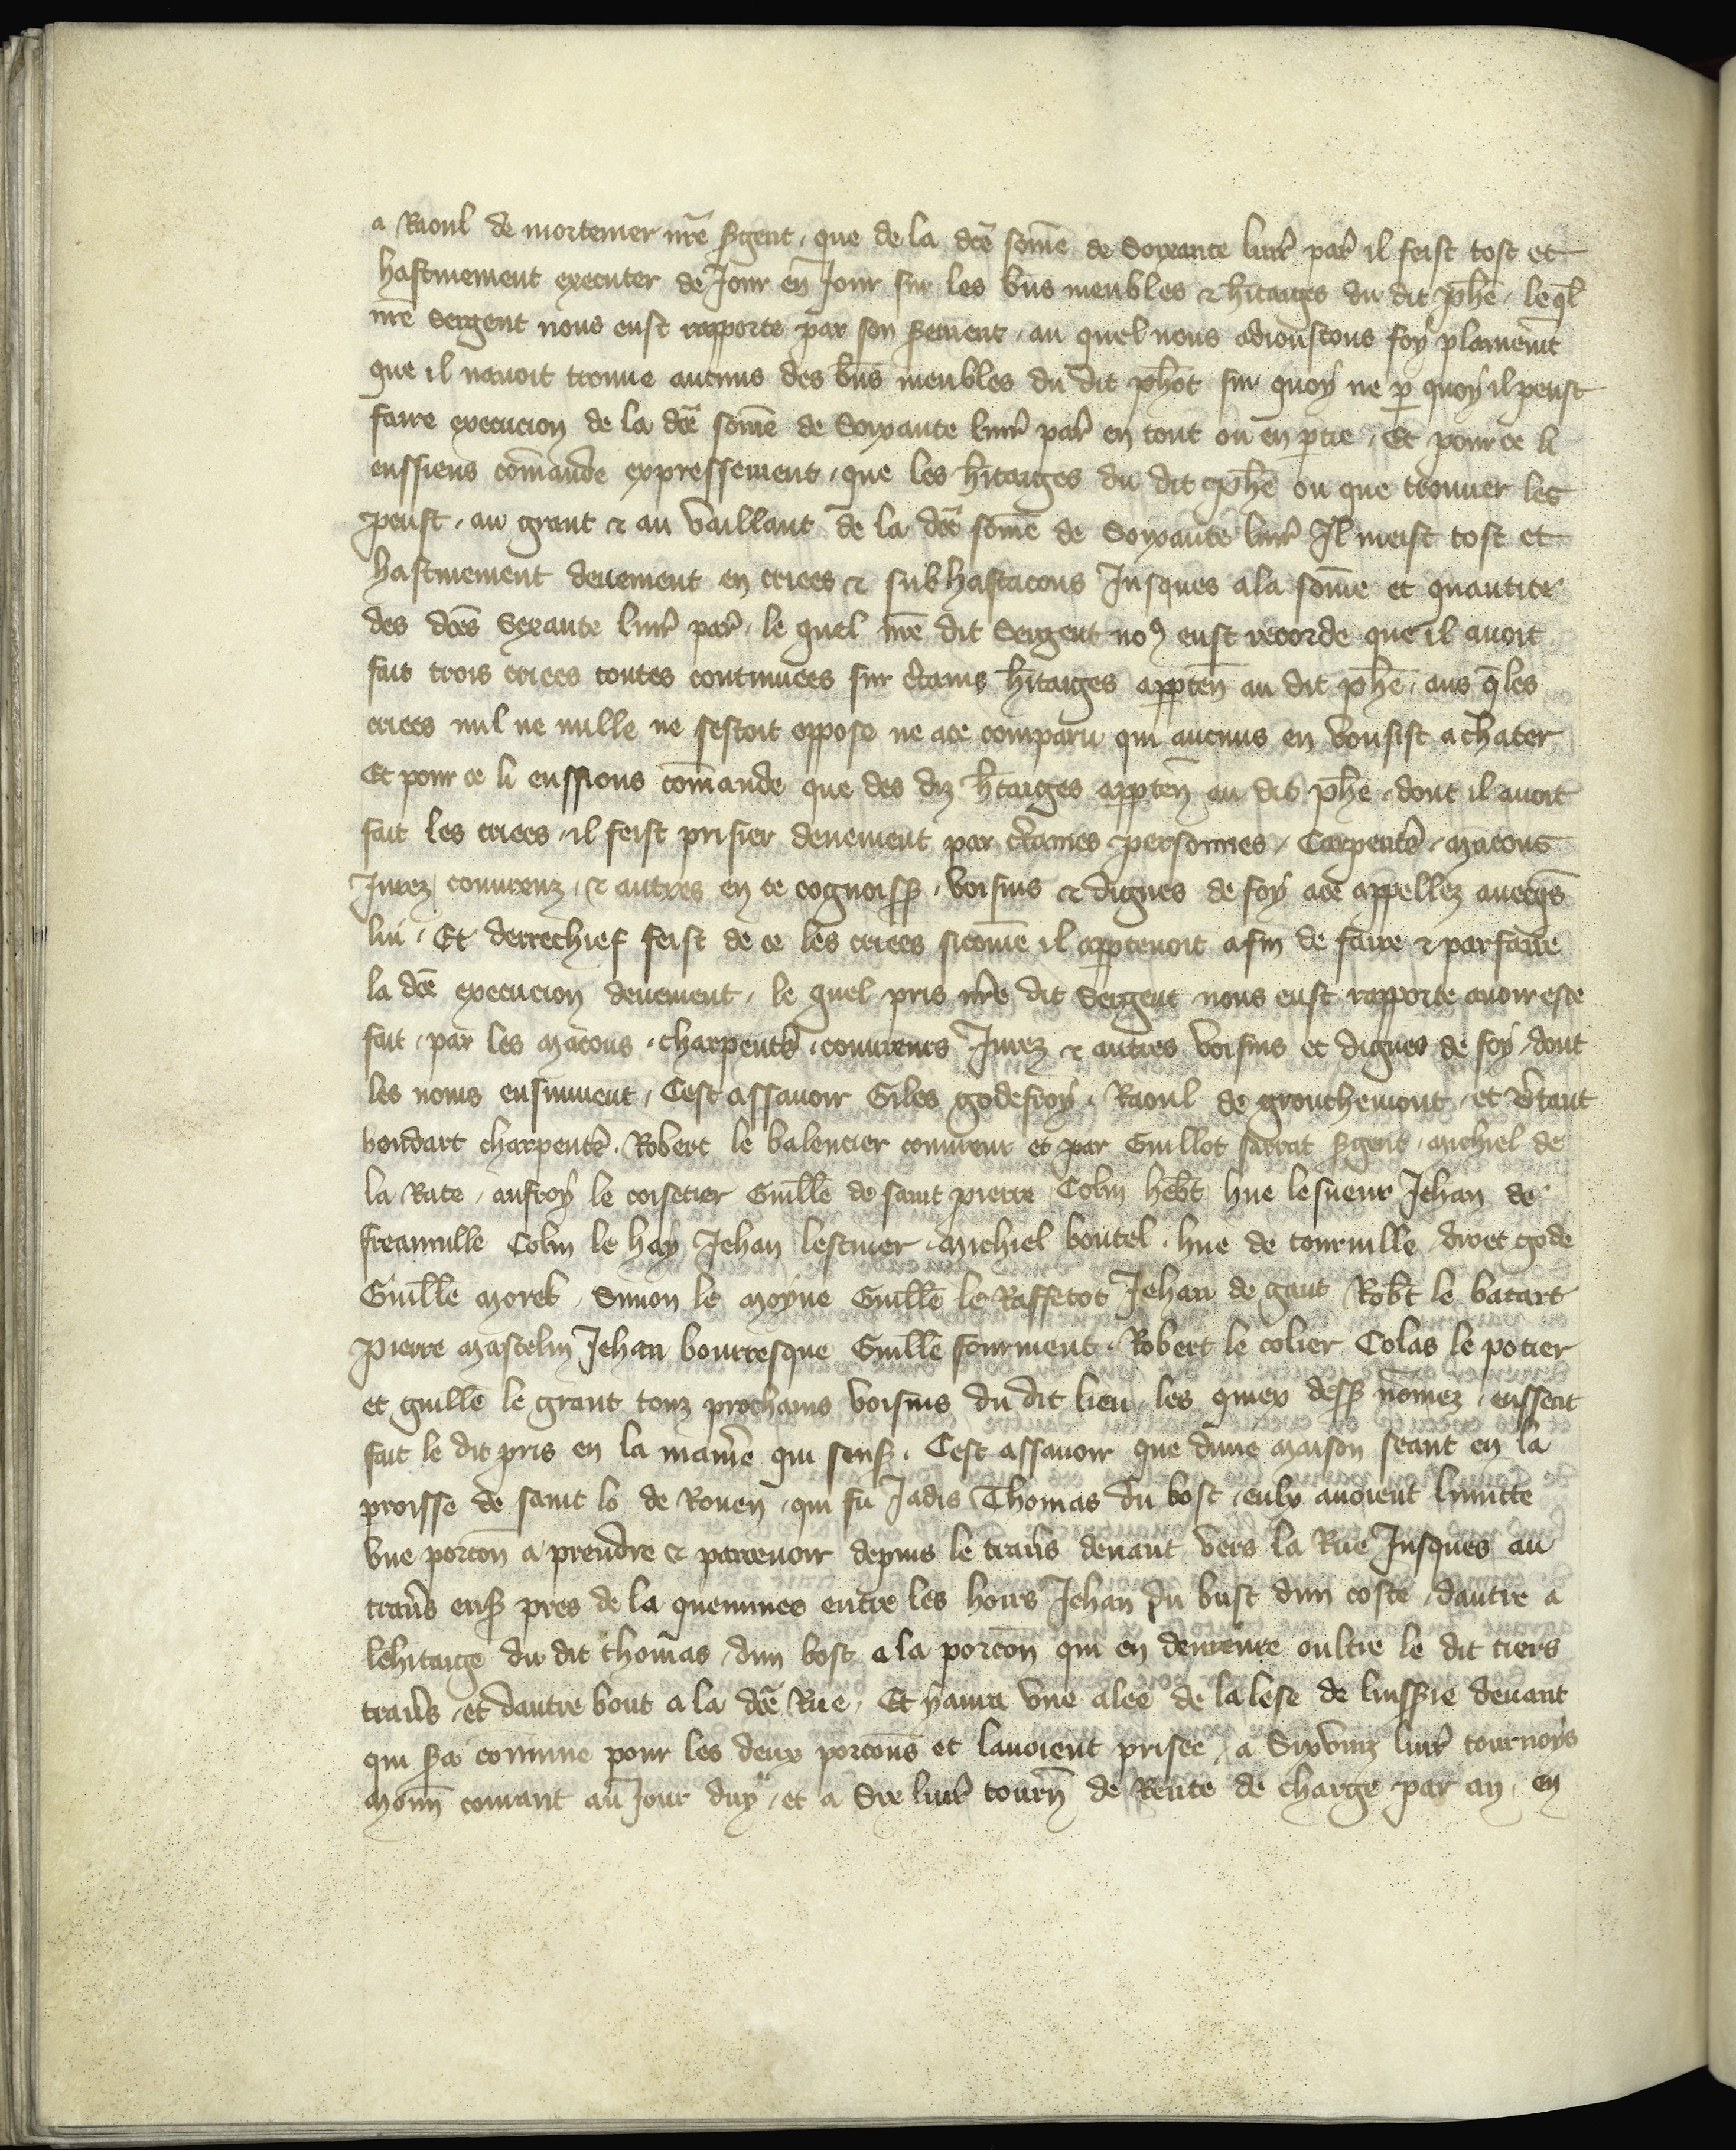 a Raoul de mortemer nr̃e sgent, que de la dcẽ som̃e de Soixante liur̃ par̃ il feist tost et
hastiuement executer de Jour en Jour sur les bñs meubles & hitaiges du dit ph̃e, leq̃l
nr̃e Sergent nous eust rapporte par son sement, au quel nous adioustons foy plainem̃t
que il nauoit trouue aucuns des bñs meubles du dit ph̃ot sur quoy ne p quoy il peust
faire execucion de la dcẽ som̃e de Soixante liur̃ par̃ en tout ou en ptie, Et pour ce li
eussiens com̃ande expressement, que les hitaiges du dit ph̃e ou que trouuer les
peust, au grant & au vaillant de la dcẽ som̃e de Soixante liur̃ Il meist tost et
hastiuement deuement en criees & subhastacons Jusques ala som̃e et quantite
des dcẽs Sexante liur̃ par̃, le quel nr̃e dit Sergent noꝯ eust recorde que il auoit
fait trois criees toutes continuees sur c̃tains hitaiges apptñ au dit ph̃e, aus q̃les
criees nul ne nulle ne sestoit oppose ne ace comparu qui aucuns en vousist achater
Et pour ce li eussions com̃ande que des diz hitaiges apptñ au dit ph̃e, dont il auoit
fait les criees, il feist prisier deuement par c̃taines personnes, Carpent̃, macons
Jurez couurenz, & autres en ce cognoiss̃, voisins & dignes de foy ace appellez auecq̃s
lui, Et derrechief feist de ce les criees sicom̃e il apptenoit afin de faire & parfaire
la dcẽ execucion deuement, le quel pris nr̃e dit Sergent nous eust rapporte auoir este
fait, par les macons, charpent̃, couureurs Jurez & autres voisins et dignes de foy, dont
les noms ensiuuent, Cest assauoir Giles godefroy, Raoul de grouchemont, et ṽtant
hondart charpent̃, Robert le balencier couureur et par Guillot sarrat sgent, michiel de
la Rate, aufroy le coisetier Guill̃e de saint pierre Colin heb̃t hue lesueur Jehan de
freauuille Colin le hay Jehan lescuier, michiel boutel, hue de touruille, droet gode
Guill̃e morek, Simon le moyne Guill̃e le Raffetot Jehan de gant Rob̃t le batart
Pierre mascelin Jehan bourresque Guill̃e fourment, Robert le colier Colas le potier
et guill̃e le grant touz prochains voisins du dit lieu, les quiex dess̃ nom̃ez, eussent
fait le dit pris en la manie̾ qui sens̃, Cest assauoir que dune maison seant en la
proisse de saint lo de Rouen, qui fu Jadis Thomas du bost, eulx auoient limitte
vne porcon a prendre & parceuoir depuis le trau̾s deuant vers la Rue Jusques au
trau̾s ens̃ pres de la queminee entre les hoirs Jehan du bust dun coste, dautre a
lehitaige du dit thom̃as, dun bost a la porcon qui en demeure oultre le dit tiers
trau̾s, et dautre bout a la dcẽ Rue, Et yaura vne alee de la lese de luisserie deuant
qui s̾a com̃une pour les deux porcons et lauoient prisee, a Sixvinz liur̃ tournoys
monñ courant au Jour duy, et a Six liur̃ tourñ de Rente de charge par an, en